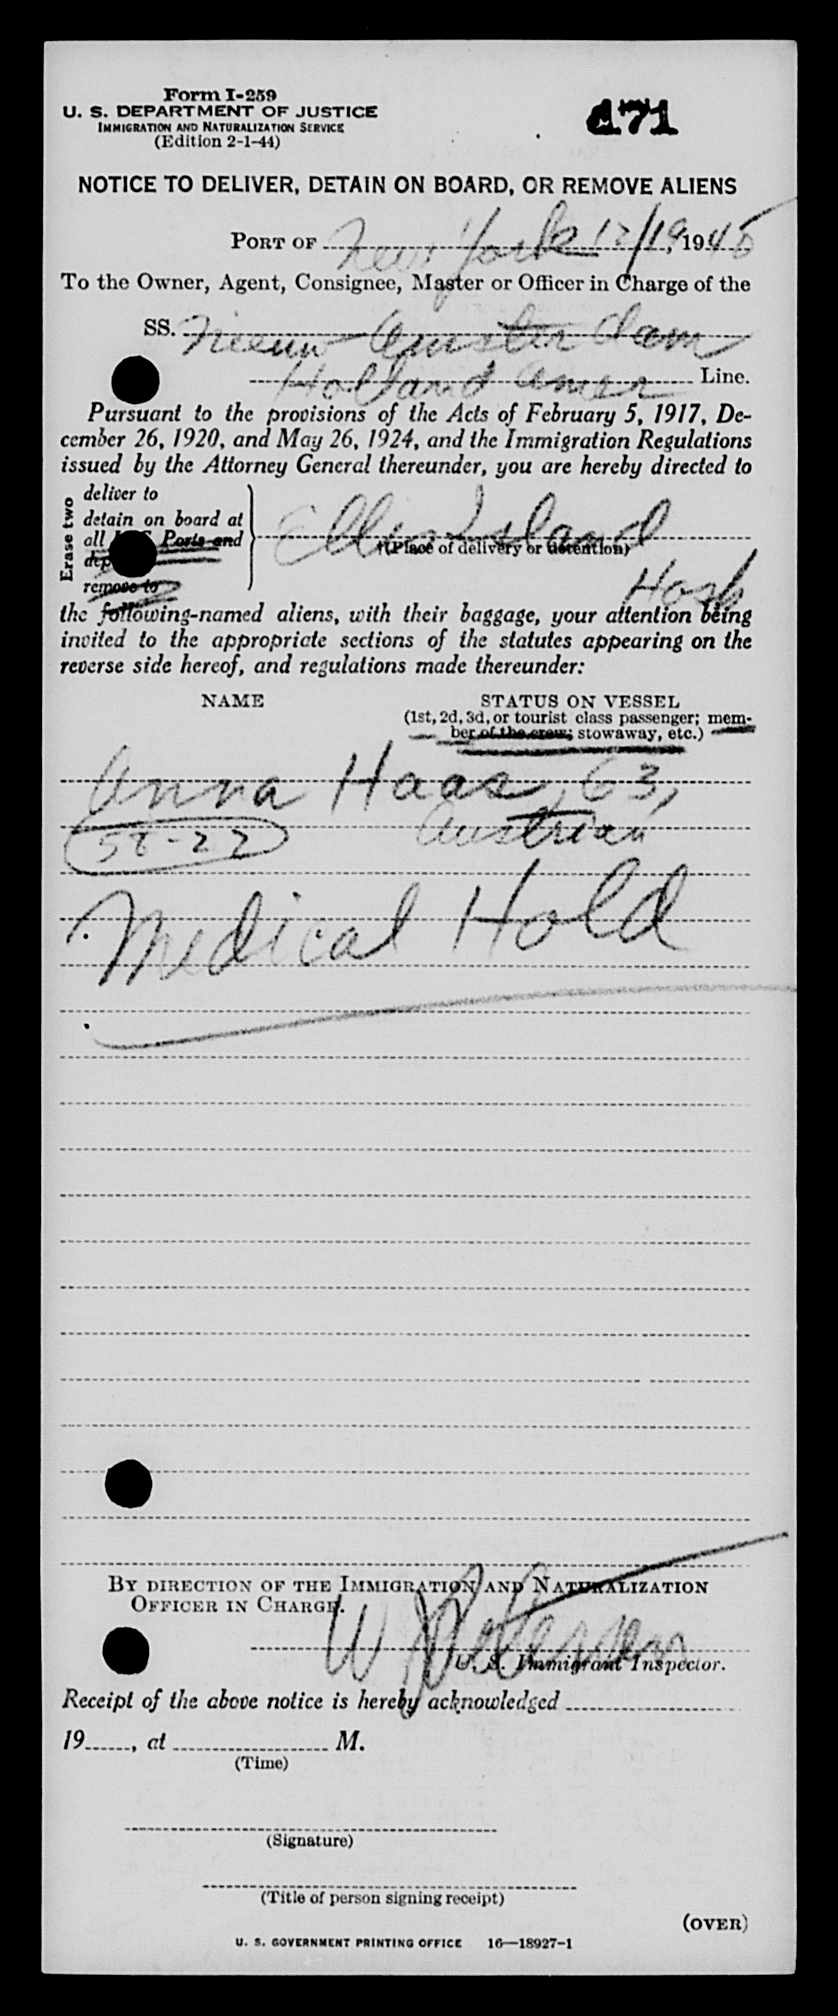 Form I-259
U. S. DEPARTMENT OF JUSTICE
IMMIGRATION AND NATURALIZATION SERVICE
(Edition 2-1-44)
471
NOTICE TO DELIVER, DETAIN ON BOARD, OR REMOVE ALIENS
PORT OF New York 12/19, 194
To the Owner, Agent, Consignee, Master or Officer in Charge of the
SS. Nieuw Amsterdam
Holland Amer Line.
Pursuant to the provisions of the Acts of February 5, 1917, De-
cember 26, 1920, and May 26, 1924, and the Immigration Regulations
issued by the Attorney General thereunder, you are hereby directed to
Erase two
deliver to
detain on board at
all Ports and
remove to
Ellis Island
(Place of delivery or detention)
Hosp
the following-named aliens, with their baggage, your attention being
invited to the appropriate sections of the statutes appearing on the
reverse side hereof, and regulations made thereunder:
NAME STATUS ON VESSEL
(1st, 2d, 3d, or tourist class passenger; mem-
ber of the crew; stowaway, etc.)
Anna Haas, 63,
58-22 Austrian
Medical Hold
BY DIRECTION OF THE IMMIGRATION AND NATURALIZATION
OFFICER IN CHARGE.
W
U. S. Immigrant Inspector.
Receipt of the above notice is hereby acknowledged
19, at M.
(Time)
(Signature)
(Title of person signing receipt)
(OVER)
U. S. GOVERNMENT PRINTING OFFICE 16—18927-1